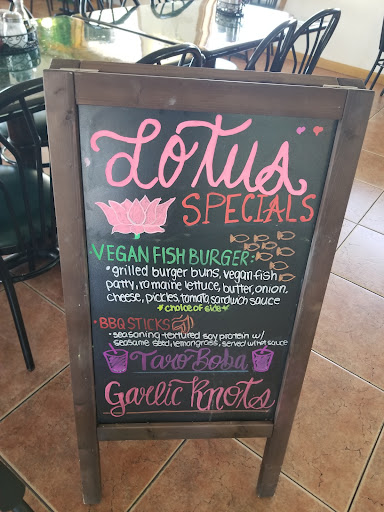 Lotus
SPECIALS
VEGAN FISH BURGER:
• grilled burger buns, vegan fish
patty, romaine lettuce, butter, onion,
cheese, pickles, tomato, sandwich sauce
*choice of side*
• BBQ STICKS
- seasoning textured soy protein w/
seasame seed, lemongrass, served w/ hot sauce
Taro Boba
Garlic Knots